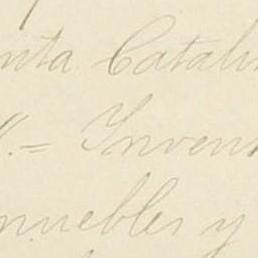 nta Catali
".= Inven
nuebles y